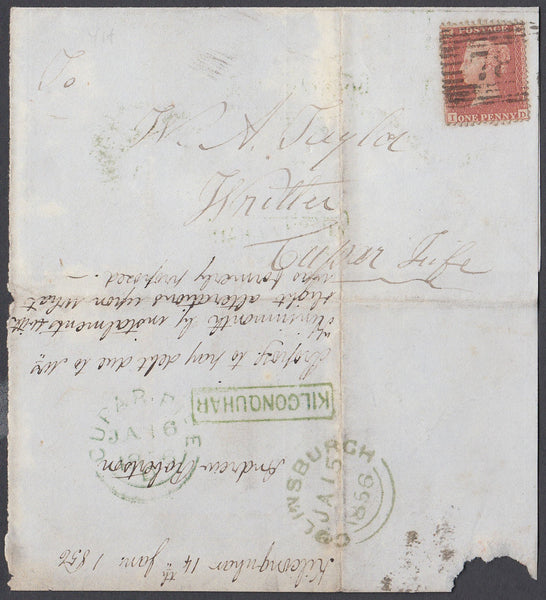 To
W. A. Taylor
Writer
Cupar Fife
POSTAGE
I ONE PENNY D
Kilconquhar 14th Jan: 1856
Andrew Robertson
Proposg to pay debt due to Mrs
by instalments with
slight alterations upon what
was formerly proposed. —
KILCONQUHAR
CUPAR-FIFE
JA 16
COLINSBURGH
JA 15
1856